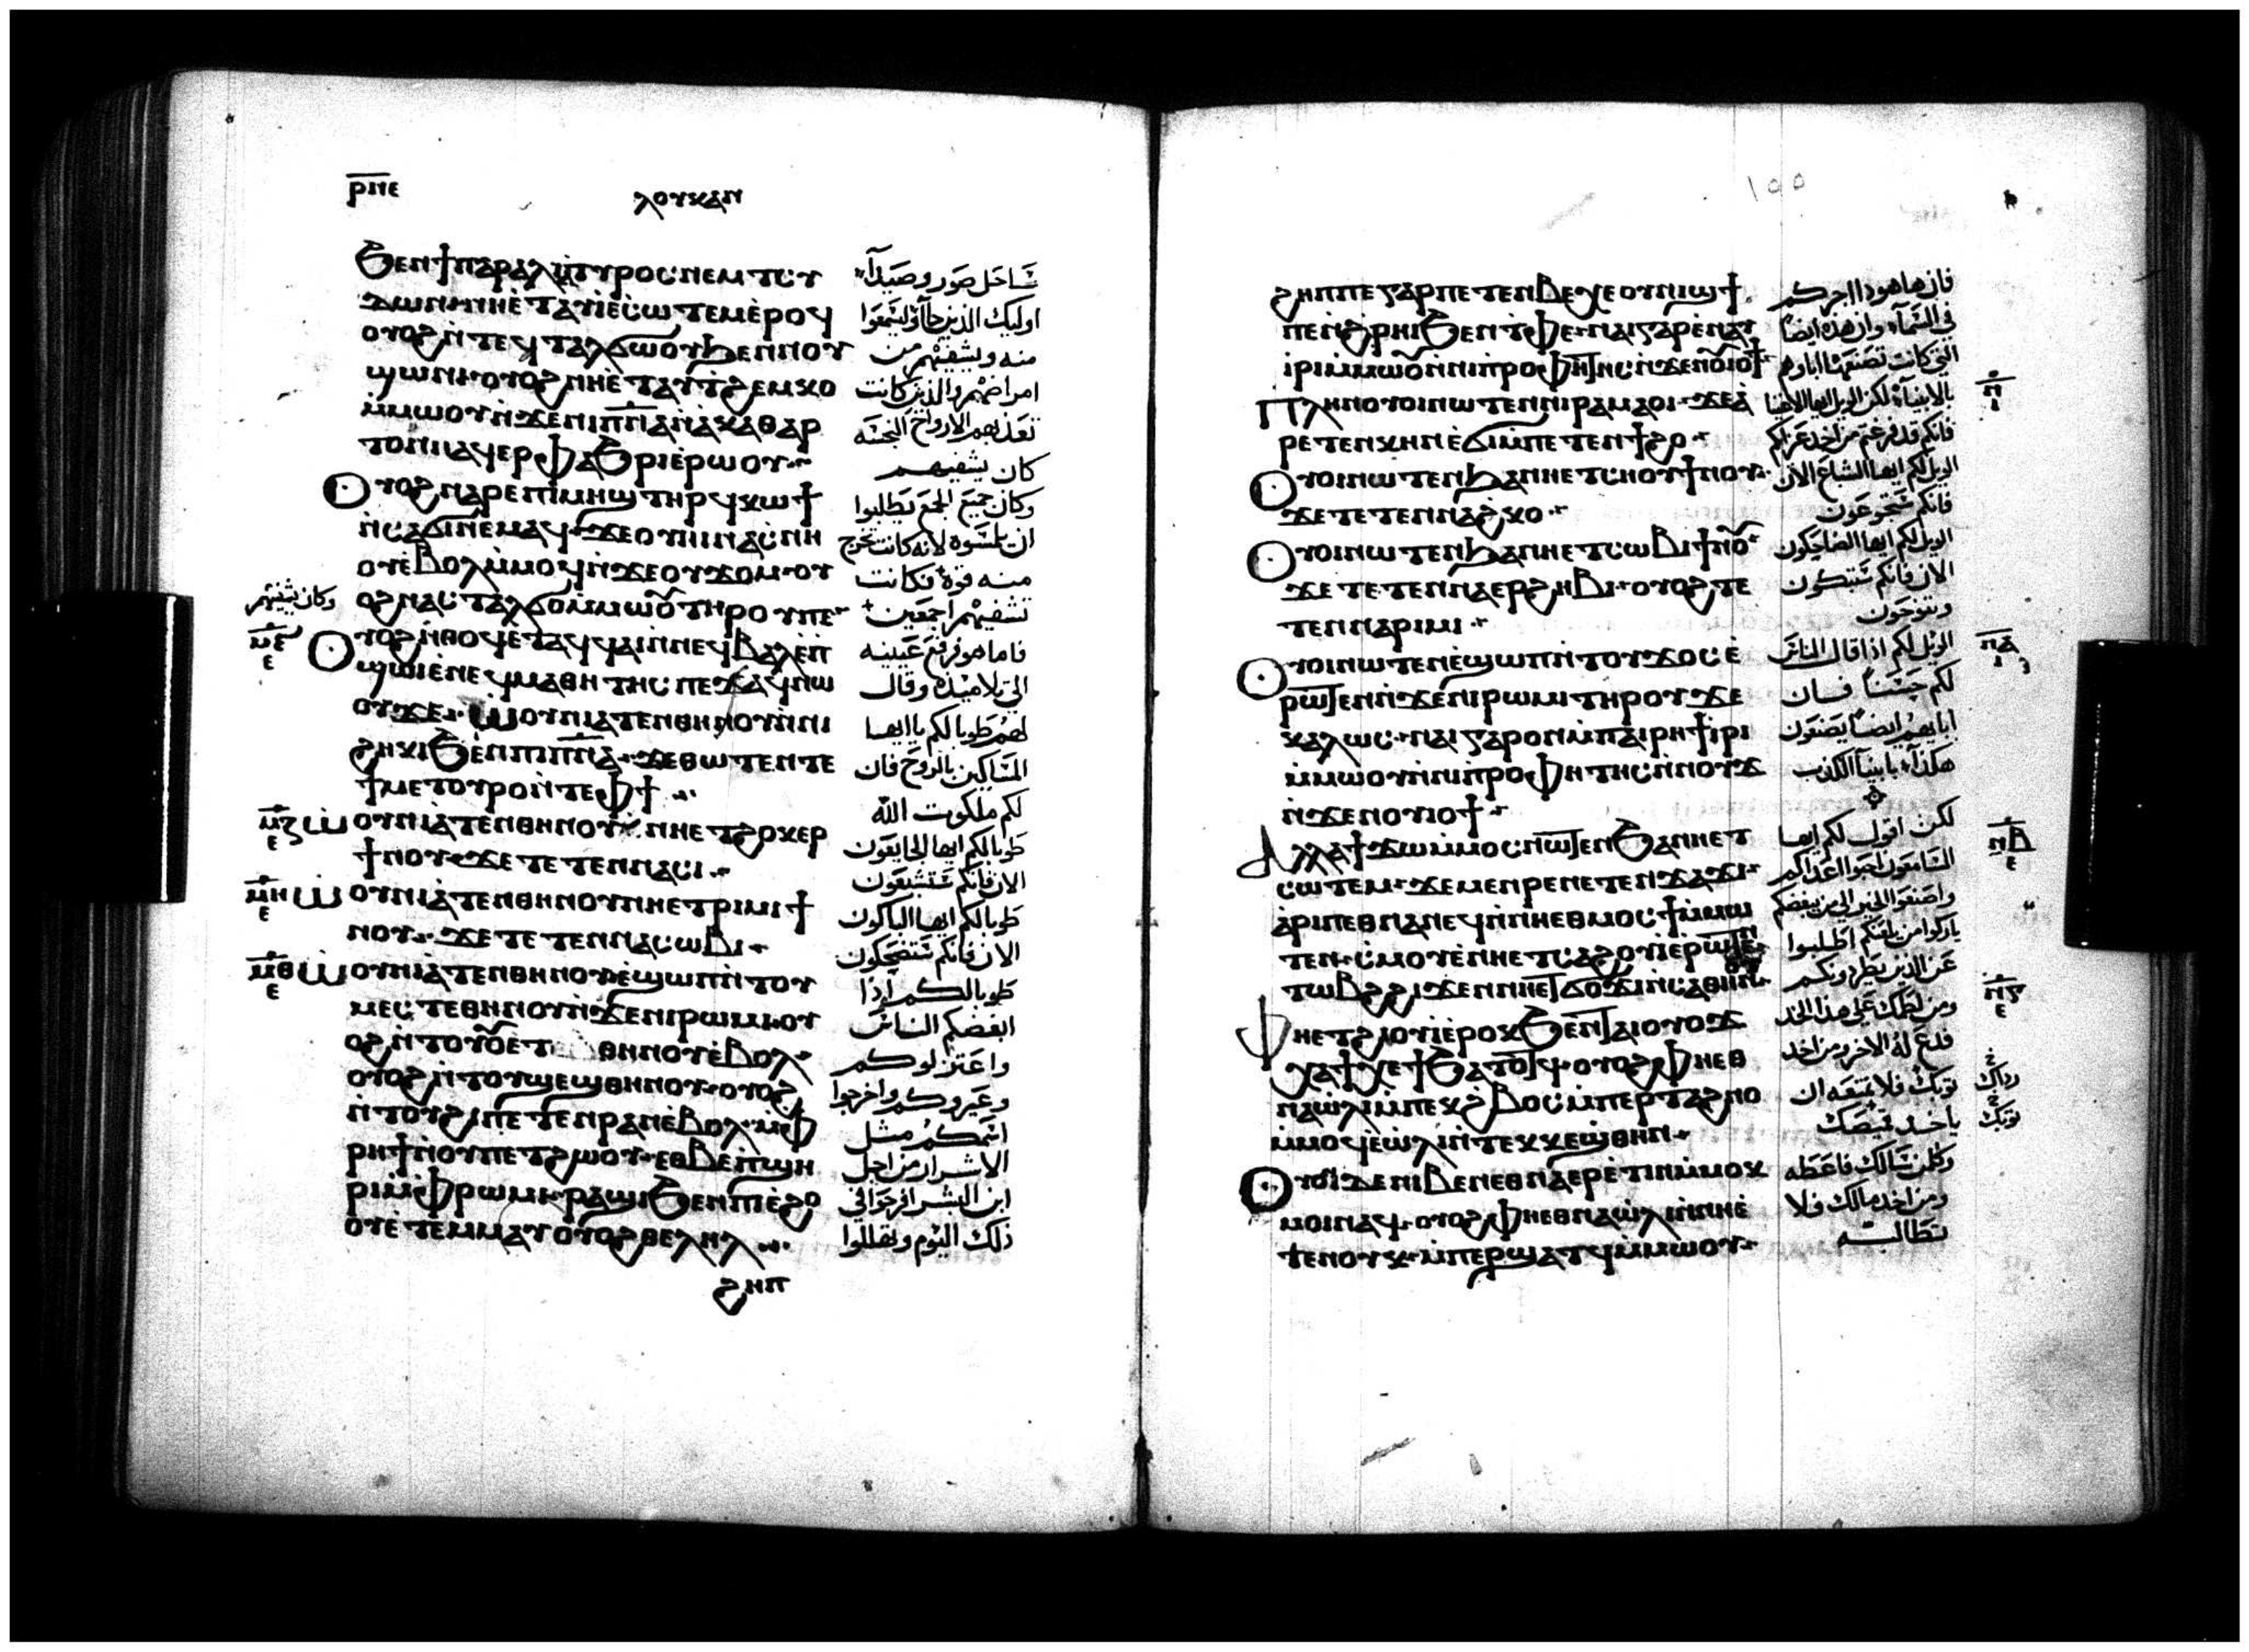 ⲣⲛⲉ
ⲗⲟⲩⲕⲁⲛ
ϧⲉⲛϯⲡⲁⲣⲁⲗⲓⲛⲧⲩⲣⲟⲥⲛⲉⲙⲧⲥⲩ
ⲇⲱⲛⲛⲏⲉⲧⲁⲩⲓⲉⲥⲱⲧⲉⲙⲉⲣⲟϥ
ⲟⲩⲟϩⲛⲧⲉϥⲧⲁⲗϭⲱⲟⲩϧⲉⲛⲛⲟⲩ
ϣⲱⲛⲓ·ⲟⲩⲟϩⲛⲏⲉⲧⲁⲩⲧϩⲉⲙⲕⲟ
ⲙⲙⲱⲟⲩⲛϫⲉⲛⲓⲡⲛⲁⲛⲁⲕⲁⲑⲁⲣ
ⲧⲟⲛⲛⲁϥⲉⲣⲫⲁϧⲣⲓⲉⲣⲱⲟⲩ
ⲟⲩⲟϩⲛⲁⲣⲉⲡⲓⲙⲏϣⲧⲏⲣϥⲕⲱϯ
ⲛⲥⲁϭⲓⲛⲉⲙⲁϥ·ϫⲉⲟⲩⲏⲓⲛⲁⲥⲛⲏ
ⲟⲩⲉⲃⲟⲗⲙⲙⲟϥⲛϫⲉⲟⲩϫⲟⲙ·ⲟⲩ
ⲟϩⲛⲁⲥⲧⲁⲗϭⲟⲙⲙⲱⲟⲩⲧⲏⲣⲟⲩⲡⲉ
ⲟⲩⲟϩⲛⲑⲟϥⲉⲧⲁϥϥⲁⲓⲛⲛⲉϥⲃⲁⲗⲉⲡ
ϣⲱⲓⲉⲛⲉϥⲙⲁⲑⲏⲧⲏⲥⲡⲉϫⲁϥⲛⲱ
ⲟⲩϫⲉ·ⲱⲟⲩⲛⲓⲁⲧⲉⲛⲑⲏⲛⲟⲩⲛⲛⲓ
ϩⲏⲕⲓϧⲉⲛⲡⲓⲡⲛⲁ·ϫⲉⲑⲱⲧⲉⲛⲧⲉ
ϯⲙⲉⲧⲟⲩⲣⲟⲛⲧⲉⲫϯ
ⲱⲟⲩⲛⲓⲁⲧⲉⲛⲑⲏⲛⲟⲩ·ⲛⲏⲉⲧϩⲟⲕⲉⲣ
ϯⲛⲟⲩ·ϫⲉⲧⲉⲧⲉⲛⲛⲁⲥⲓ
ⲱⲟⲩⲛⲓⲁⲧⲉⲛⲑⲏⲛⲟⲩⲛⲏⲉⲧⲣⲓⲙⲓϯ
ⲛⲟⲩ·ϫⲉⲧⲉⲧⲉⲛⲛⲁⲥⲱⲃⲓ
ⲱⲟⲩⲛⲓⲁⲧⲉⲛⲑⲏⲛⲟⲩⲉϣⲱⲡⲛⲧⲟⲩ
ⲙⲉⲥⲧⲉⲑⲏⲛⲟⲩⲛϫⲉⲛⲓⲣⲱⲙⲓ·ⲟⲩ
ⲑⲏⲛⲟⲩⲉⲃⲟⲗ
ⲟⲩⲟϩⲛⲧⲟⲩϣⲉϣⲑⲏⲛⲟⲩ·ⲟⲩⲟϩ
ⲛⲧⲟⲩϩⲓⲡⲉⲧⲉⲛⲣⲁⲛⲉⲃⲟⲗ·ⲙⲫ
ⲣⲏϯⲛⲟⲩⲡⲉⲧϩⲱⲟⲩ·ⲉⲑⲃⲉⲡϣⲏ
ⲣⲓⲙⲫⲣⲱⲙⲓ·ⲣⲁϣⲓϧⲉⲛⲡⲓⲉϩⲟ
ⲟⲩⲉⲧⲉⲙⲙⲁⲩⲟⲩⲟϩⲑⲉⲗⲏⲗ
ϩⲏⲡ
شاحل صور وصيدآء
اوليك الذين جآؤ ليسمعوا
منه ويشفيهم من
امراضهم والذين كانت
تعذبهم الارواح النجسه
كان يشفيهم
وكان جميع الجمع يطلبوا
ان يلمسوه لانه كانت تخرج
منه قوة فكانت
تشفيهم اجمعين
وكان يشفيهم
فاما هو فرفع عينيه
الى تلاميذه وقال
لهم طوبا لكم يا ايها
المساكين بالروح فان
لكم ملكوت الله
طوبا لكم ايها الجايعون
الان فانكم ستشبعون
طوبا لكم ايها الباكون
الان فانكم ستضحكون
طوبا لكم اذا
ابغضكم الناس
واعتزلوكم
وعيروكم واخرجوا
اسمكم مثل
الاشرار من اجل
ابن البشر افرحوا في
ذلك اليوم وتهللوا
ⲙⲍ
ⲉ
ⲙⲏ
ⲉ
ⲙⲑ
ⲉ
١٥٥
ϩⲏⲡⲡⲉⲅⲁⲣⲡⲉⲧⲉⲛⲃⲉⲭⲉⲟⲩⲛⲓϣϯ
ⲡⲉⲛϩⲣⲏⲓϧⲉⲛⲧⲫⲉ·ⲛⲁⲓⲅⲁⲣⲉⲛⲁⲩ
ⲓⲣⲓⲙⲙⲱⲟⲩⲛⲛⲓⲡⲣⲟⲫⲏⲧⲏⲥⲛϫⲉⲛⲟⲩⲓⲟϯ
ⲡⲗⲏⲛⲟⲩⲟⲓⲛⲱⲧⲉⲛⲛⲓⲣⲁⲙⲁⲟⲓ·ϫⲉⲁ
ⲣⲉⲧⲉⲛⲕⲏⲛⲉϭⲓⲙⲡⲉⲧⲉⲛϯϩⲟ
ⲟⲩⲟⲓⲛⲱⲧⲉⲛϧⲁⲛⲏⲉⲧⲥⲏⲟⲩϯⲛⲟⲩ
ϫⲉⲧⲉⲧⲉⲛⲛⲁϩⲕⲟ
ⲟⲩⲟⲓⲛⲱⲧⲉⲛϧⲁⲛⲏⲉⲧⲥⲱⲃⲓϯⲛⲟⲩ
ϫⲉⲧⲉⲧⲉⲛⲛⲁⲉⲣϩⲏⲃⲓ·ⲟⲩⲟϩⲧⲉ
ⲧⲉⲛⲛⲁⲣⲓⲙⲓ
ⲟⲩⲟⲓⲛⲱⲧⲉⲛⲉϣⲱⲡⲛⲧⲟⲩϫⲟⲥⲉ
ⲣⲱⲧⲉⲛⲛϫⲉⲛⲓⲣⲱⲙⲓⲧⲏⲣⲟⲩϫⲉ
ⲕⲁⲗⲱⲥ·ⲛⲁⲓⲅⲁⲣⲟⲛⲙⲡⲁⲓⲣⲏϯⲓⲣⲓ
ⲙⲙⲱⲟⲩⲛⲛⲓⲡⲣⲟⲫⲏⲧⲏⲥⲛⲛⲟⲩϫ
ⲛϫⲉⲛⲟⲩⲓⲟϯ
ⲁⲗⲗⲁϯϫⲱⲙⲙⲟⲥⲛⲱⲧⲉⲛϧⲁⲛⲏⲉⲧ
ⲥⲱⲧⲉⲙ·ϫⲉⲙⲉⲛⲣⲉⲛⲉⲧⲉⲛϫⲁϫⲓ
ⲁⲣⲓⲡⲉⲑⲛⲁⲛⲉϥⲛⲛⲏⲉⲑⲙⲟⲥϯⲙⲙⲱ
ⲧⲉⲛ·ⲥⲙⲟⲩⲉⲛⲏⲉⲧⲥⲁϩⲟⲩⲓⲉⲣⲱⲧⲉⲛ
ⲧⲱⲃϩϩⲓϫⲉⲛⲛⲏⲉⲧϭⲟϫⲓⲛⲥⲁⲑⲏⲛ
ⲫⲏⲉⲧϩⲓⲟⲩⲓⲉⲣⲟⲕϧⲉⲛⲧⲁⲓⲟⲩⲟϫ
ⲭⲁϯⲭⲉϯϧⲁⲧⲟⲧϥ·ⲟⲩⲟϩⲫⲏⲉⲑ
ⲛⲁⲱⲗⲓⲙⲡⲉⲕϩⲃⲟⲥⲙⲡⲉⲣⲧⲁϩⲛⲟ
ⲙⲙⲟϥⲉⲱⲗⲓⲛⲧⲉⲕⲕⲉϣⲑⲏⲛ
ⲟⲩⲟⲛϫⲉⲛⲓⲃⲉⲛⲉⲑⲛⲁⲉⲣⲉⲧⲓⲛⲙⲙⲟⲕ
ⲙⲟⲓⲛⲁϥ·ⲟⲩⲟϩⲫⲏⲉⲑⲛⲁⲱⲗⲓⲛⲛⲏⲉ
ⲧⲉⲛⲟⲩⲕ·ⲙⲡⲉⲣϣⲁⲧϥⲙⲙⲱⲟⲩ
فان هاهوذا اجركم
في السمآء وان هذه ايضا
التي كانت تصنعها اباوهم
بالانبيآء لكن الويل لكم ايها الاغنيا
فانكم قد فرغتم من اخذ عزاكم
الويل لكم ايها الشباع الان
فانكم ستجوعون
الويل لكم ايها الضاحكون
الان فانكم ستبكون
وتنوحون
الويل لكم اذا قال الناس
لكم حسنا فان
ابايهم ايضا يصنعون
هكذا بانبيآ الكذب
لكن اقول لكم ايها
السامعون احبوا اعداكم
واصنعوا الخير الى من يبغضكم
باركوا من يلعنكم اطلبوا
عن الذين يطردونكم
ومن لطمك على هذا الخد
فدع له الاخر ومن اخذ
ثوبك فلا تمنعه ان
ياخذ قميصك
وكل من سالك فاعطه
ومن اخذ مالك فلا
تطالبه
رداك
ثوبك